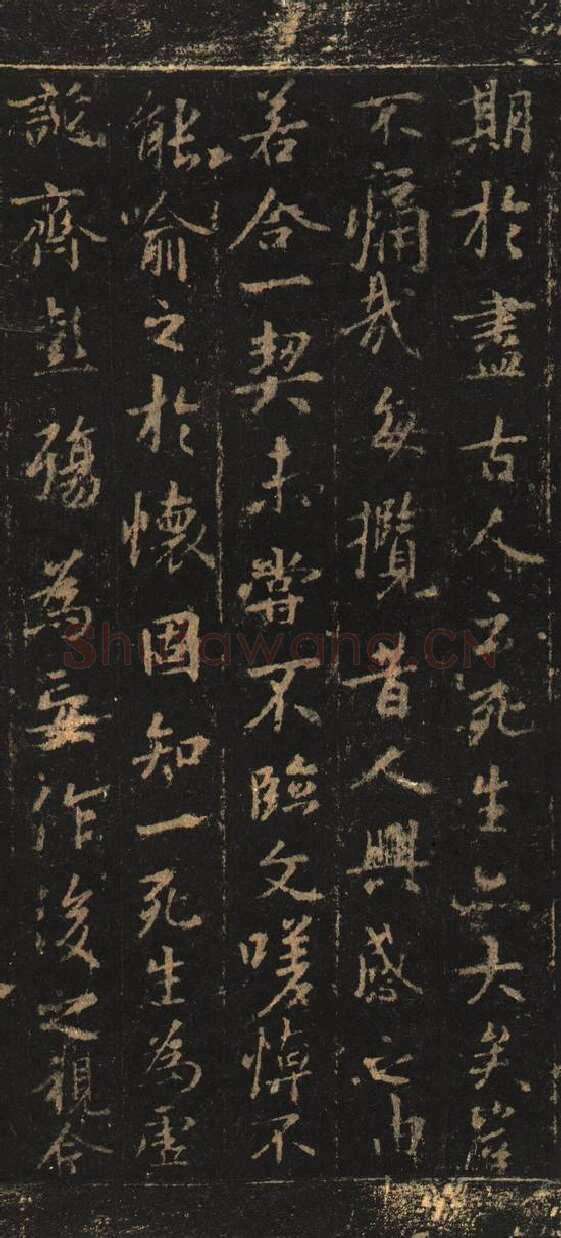 期於盡古人云死生亦大矣豈
不痛哉每攬昔人興感之由
若合一契未嘗不臨文嗟悼不
能喻之於懷固知一死生為虛
誕齊彭殤為妄作後之視今
Shufawang.CN